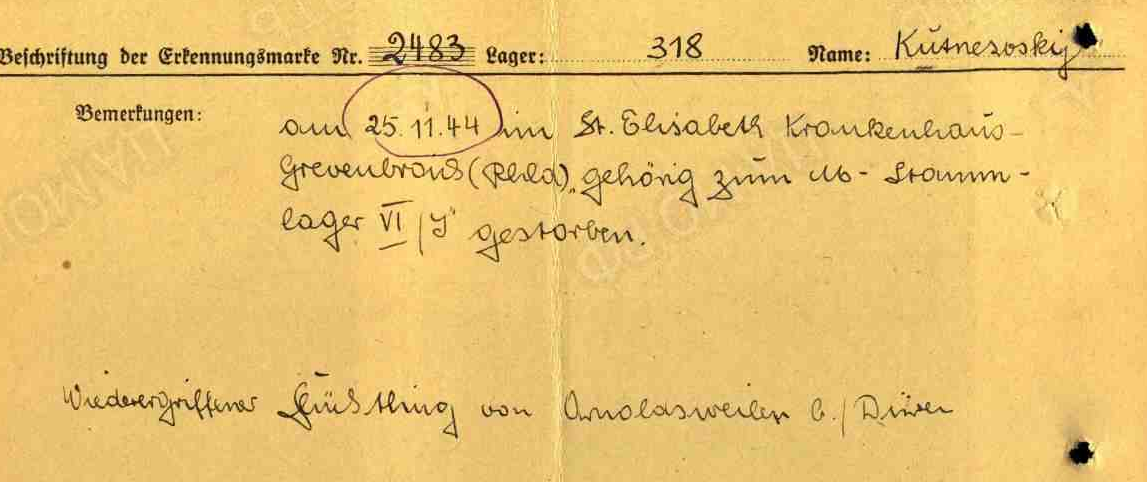 Beschriftung der Erkennungsmarke Nr. 2483 Lager: 318 Name: Kutnesoskij
Bemerkungen:
am 25.11.44 im St. Elisabeth Krankenhaus-
Grevenbroich (Rhld) „gehörig zum M- Stamm-
lager VI/J" gestorben.
Wiederergriffener Flüchtling von Arnoldsweiler b./Düren